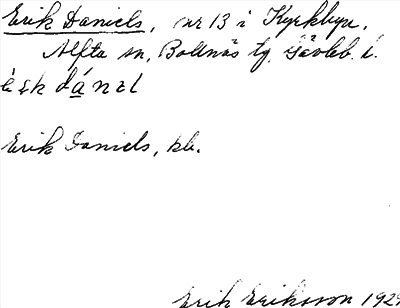 Erik Daniels, nr 13 i Kyrkbyn,
Alfta sn, Bollnäs tg. Gävleb. l.
èrk dánɛl
Erik Daniels, pb.
Erik Eriksson 192